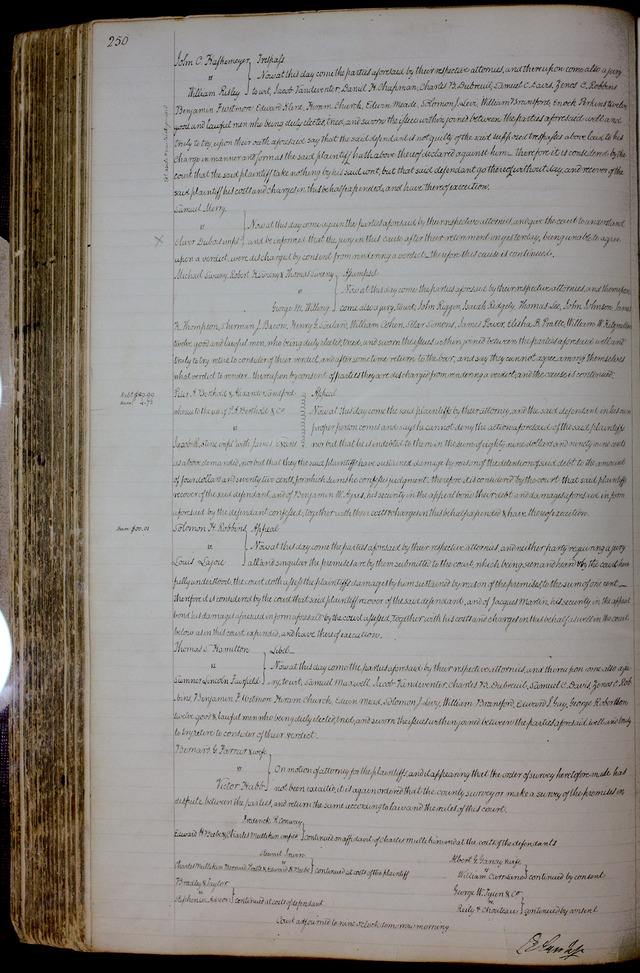 250
John C. Hafkemeyer } Trespass
vs Now at this day come the parties aforesaid by their respective attornies, and thereupon come also a jury
William Risley to wit, Jacob Vandeventer, Daniel H. Chapman, Charles H. Dubreuil, Samuel C. Davis, Zenos C. Robbins
Benjamin F. Wetmore Edward Kline, Hiram Church, Edwin Meade, Solomon J. Levi, William Bransford, Enock Perkins twelve
good and lawful men who being duly elected, tried, and sworn the issue within joined between the parties aforesaid well and
truly to try, upon their oath aforesaid say that the said defendant is not guilty of the said supposed trespasses above laid to his
charge in manner and form as the said plaintiff hath above thereof declared against him — therefore it is considered by the
court that the said plaintiff take nothing by his said writ, but that said defendant go thereof without day, and recover of the
said plaintiff his costs and charges in this behalf expended, and have thereof execution.
Samuel Merry
vs } Now at this day come again the parties aforesaid by their respective attornies, and give the court to understand
and be informed that the jury in this cause after their retirement on yesterday, being unable to agree
upon a verdict, were discharged by consent from rendering a verdict — therefore this cause is continued.
Michael Sweny, Robert H. Sweny & Thomas Sweny } Assumpsit
vs Now at this day come the parties aforesaid by their respective attornies, and thereupon
George M. come also a jury, to wit, John Riggin, Isaiah Ridgely, Thomas Lee, John Johnson, James
H. Thompson, Sherman J. Bacon, Henry G. Soulard, William Cohen, Silas Simons, James Power, Elisha B. Pratte, William W.
twelve good and lawful men, who being duly elected, tried, and sworn the issue within joined between the parties aforesaid well and
truly to try retire to consider of their verdict, and after some time return to the bar, and say they cannot agree among themselves
what verdict to render, thereupon by consent of parties they are discharged from rendering a verdict and the cause is continued.
Debt $89.99 Peter A. Berthold & Alexander Sandford } Appeal
Dam. 4.72 who sue to the use of P. A. Berthold & Co. Now at this day come the said plaintiffs by their attorney, and the said defendant in his own
vs proper person comes and says he cannot deny the action aforesaid of the said plaintiffs
nor but that he is indebted to them in the sum of eighty nine dollars and ninety nine cents
as above demanded, nor but that they the said plaintiffs have sustained damage by reason of the detention of said debt to the amount
of four dollars and seventy two cents, for which sums he confesses judgment. therefore it is considered by the court that said plaintiffs
recover of the said defendant, and of Benjamin W. Ayres, his security in the appeal bond their debt and damages aforesaid in form
aforesaid by the defendant confessed, together with their costs & charges in this behalf expended & have thereof execution.
Dam. $00.01 Solomon H. Robbins } Appeal
vs Now at this day come the parties aforesaid by their respective attornies, and neither party requiring a jury
Louis Lajoie all and singular the premises are by them submitted to the court, which being seen and heard & by the court here
fully understood, the court doth assess the plaintiffs damages by him sustained by reason of the premises to the sum of one cent —
therefore it is considered by the court that said plaintiff recover of the said defendant, and of Jacques Martin, his security in the appeal
bond his damages aforesaid in form aforesaid by the court assessed, together with his costs and charges in this behalf as well in the court
below as in this court expended, and have thereof execution.
Thomas S. Hamilton } Libel
vs Now at this day come the parties aforesaid by their respective attornies, and thereupon come also a ju-
Sumner Lincoln Fairfield ry, to wit, Samuel Maxwell, Jacob Vandeventer, Charles H. Dubreuil, Samuel C. Davis, Zenos C. Rob
bins, Benjamin F. Wetmore Hiram Church, Edwin Mead, Solomon J. Levy, William Bransford, Edward S. Gay, George Robertson
twelve good & lawful men who being duly elected, tried, and sworn the issue within joined between the parties aforesaid well and truly
to try retire to consider of their verdict.
Bernard G. Farrar & wife
vs } On motion of attorney for the plaintiffs, and it appearing that the order of survey heretofore made has
Victor Habb not been executed, it is again ordered that the county surveyor make a survey of the premises in
dispute between the parties, and return the same according to law and the rules of this court.
Frederick R. Conway
vs
Edward H. Beebe & Charles Mullikin impl. } continued on affidavit of Charles Mullikin and at the costs of the defendants
vs
Charles Mullikin Bernard Pratte & Edward H. Beebe } continued at costs of the plaintiff
Albert G. Gancy & wife
vs
William Carr Lane } continued by consent
Bradley & Taylor
vs
continued at costs of defendant
George W. & Co
vs
Ruly & Chouteau } continued by consent
Court adjourned to nine o'clock tomorrow morning